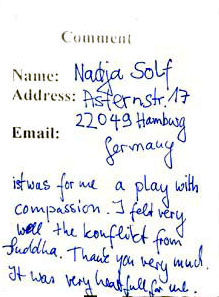 Comment
Name: Nadja Solf
Address: Asternstr. 17
22049 Hamburg
Email:
Germany
ist was for me a play with
compassion. I felt very
well the konflikt from
Buddha. Thank you very much.
It was very heartfull for me.